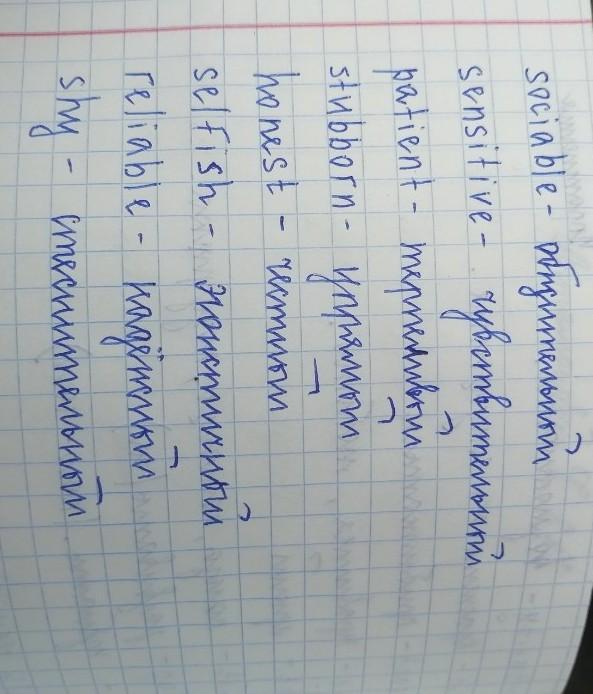 sociable - общительный
sensitive - чувствительный
patient - терпеливый
stubborn - упрямый
honest - честный
selfish - эгоистичный
reliable - надёжный
shy - стеснительный